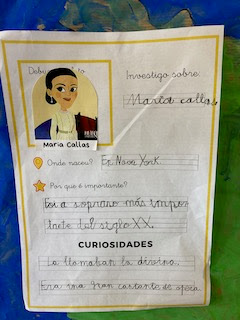 Investigo sobre:
Maria callas
Maria Callas
Onde naceu? En Nova York.
Por que é importante?
Foi a soprano más impor
tante del siglo XX.
CURIOSIDADES
La llamaban la divina.
Era una gran cantante de opera.